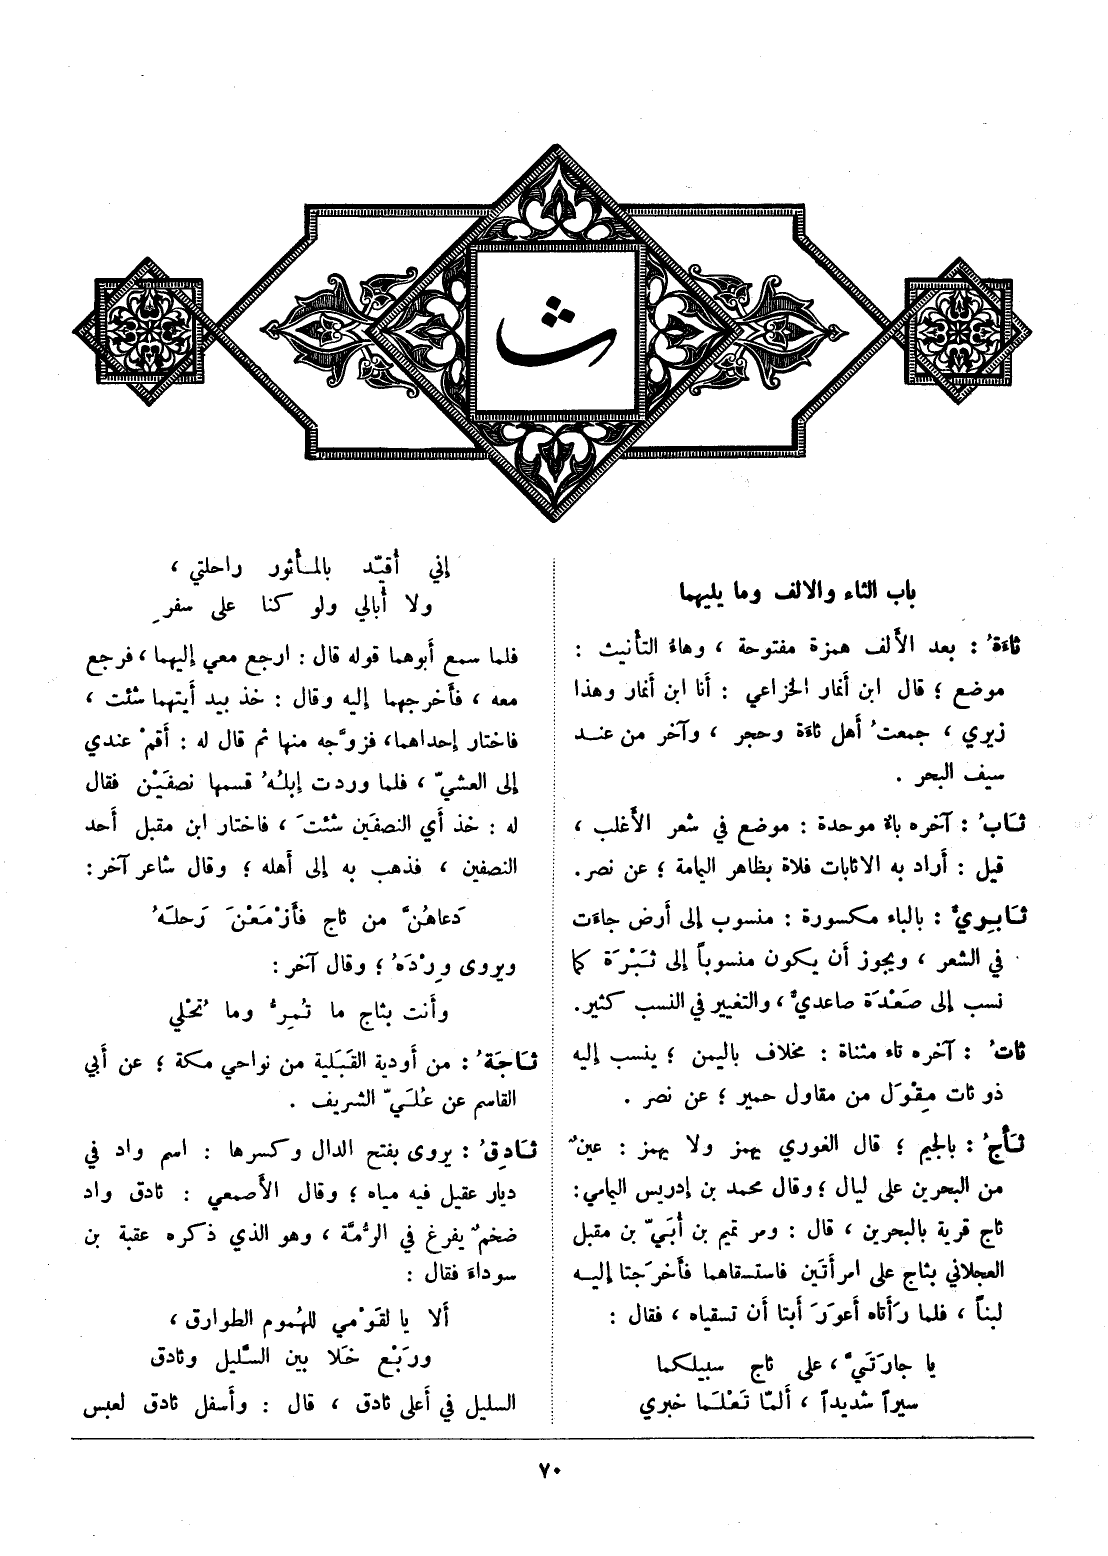 ث
باب الثاء والالف وما يليهما
ثاءَةُ : بعد الأَلف همزة مفتوحة ، وهاءُ التأْنيث :
موضع ؛ قال ابن أَنمار الخزاعي : أَنا ابن أَنمار وهذا
زيري ، جمعتُ أهل ثاءَة وحجر ، وآخر من عنـد
سيف البحر .
ثـابُ : آخره باءٌ موحدة : موضع في شعر الأَغلب ،
قيل : أَراد به الاثابات فلاة بظاهر اليمامة ؛ عن نصر.
ثـابِريٌ : بالباء مكسورة : منسوب إلى أرض جاءَت
في الشعر ، ويجوز أَن يكون منسوباً إلى ثَبْرَة كما
نسب إلى صَعْدَة صاعديٌ ، والتغيير في النسب كثير.
ثاتُ : آخره تاء مثناة : مخلاف باليمن ؛ ينسب إليه
ذو ثات مِقْوَل من مقاول حمير ؛ عن نصر .
ثَـأْجُ : بالجيم ؛ قال الغوري يهمز ولا يهمز : عينٌ
من البحرين على ليال ؛ وقال محمد بن إدريس اليمامي :
ثاج قرية بالبحرين ، قال : ومر تميم بن أُبَيّ بن مقبل
العجلاني بثاج على امرأَتَين فاستسقاهما فأَخرَجتا إليـه
لبناً ، فلما رَأَتاه أَعوَرَ أَبتا أَن تسقياه ، فقال :
يا جارَتَيَّ ، على ثاج سبيلكما
سيراً شديداً ، أَلمّا تَعْلَـمَا خبري
إني أُقيّد بالمـأْثور راحلتي ،
ولا أُبالي ولو كنا على سفرِ
فلما سمع أَبوهما قوله قال : ارجع معي إليهما ، فرجع
معه ، فأَخرجهما إليه وقال : خذ بيد أَيتهما شئت ،
فاختار إحداهما، فزوَّجه منها ثم قال له : أَقمْ عندي
إلى العشيّ ، فلما وردت إبلُهُ قسمها نصفَيْن فقال
له : خذ أَي النصفَين شئتَ ، فاختار ابن مقبل أَحد
النصفين ، فذهب به إلى أَهله ؛ وقال شاعر آخر :
دَعاهُنَّ من ثاج فأَزْمَعْنَ رَحلَهُ
ويروى وِرْدَهُ ؛ وقال آخر :
وأَنت بثاج ما تُمِرُّ وما تُحْلي
ثـاجَةُ : من أَودية القَبَلية من نواحي مكة ؛ عن أَبي
القاسم عن عُلَـيّ الشريف .
ثـادِقُ : يروى بفتح الدال وكسرها : اسم واد في
ديار عقيل فيه مياه ؛ وقال الأَصمعي : ثادق واد
ضخمٌ يفرغ في الرُّمَّة ، وهو الذي ذكره عقبة بن
سوداءَ فقال :
أَلا يا لقَوْمي للهُموم الطوارق ،
ورَبْع خَلا بين السَّليل وثادق
السليل في أَعلى ثادق ، قال : وأَسفل ثادق لعبس
٧٠